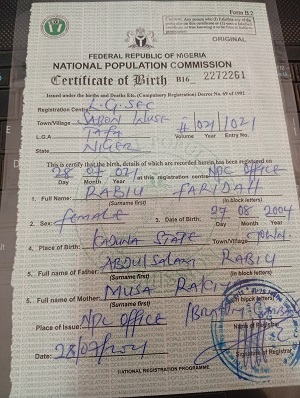 Form B.2
ORIGINAL
FEDERAL REPUBLIC OF NIGERIA
NATIONAL POPULATION COMMISSION
Certificate of Birth B16 2272261
Issued under the births and Deaths Etc. (Compulsory Registration) Decree No. 69 of 1992
Registration Centre L.G. SEC
Town/Village SABON WUSE
L.G.A TAFA 4 021 021
Volume Year Entry No.
State NIGER
This is certify that the birth, details of which are recorded herein has been registered on
28 07 021 at this registration centre NPC OFFICE
Day Month Year
1. Full Name: RABIU FARIDAH
(Surname first) (in block letters)
2. Sex: female 3. Date of Birth: 27 08 2004
Day Month Year
4. Place of Birth: KADUNA STATE Town/Village
5. Full name of Father: ABDULSALAM RABIU
(Surname first) (in block letters)
5. Full name of Mother: MUSA
(Surname first) (in block letters)
Place of Issue: NPC OFFICE IBRAHIM
Name of Registrar
Date: 28/07/2021
Signature of Registrar
NATIONAL REGISTRATION PROGRAMME